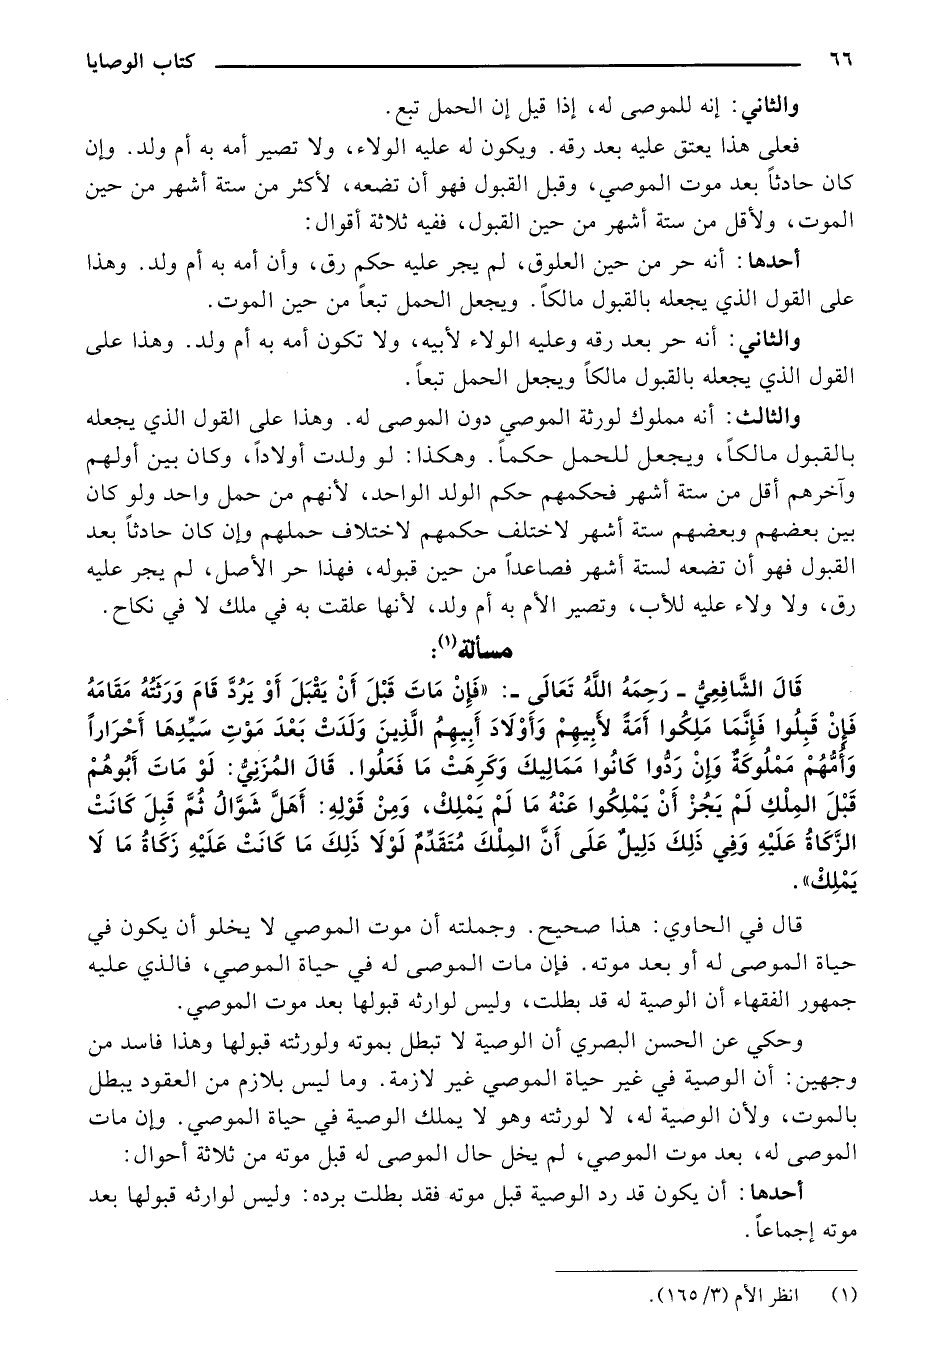 ٦٦ كتاب الوصايا
والثاني: إنه للموصى له، إذا قيل إن الحمل تبع.
فعلى هذا يعتق عليه بعد رقه. ويكون له عليه الولاء، ولا تصير أمه به أم ولد. وإن
كان حادثاً بعد موت الموصي، وقبل القبول فهو أن تضعه، لأكثر من ستة أشهر من حين
الموت، ولأقل من ستة أشهر من حين القبول، ففيه ثلاثة أقوال:
أحدها: أنه حر من حين العلوق، لم يجر عليه حكم رق، وأن أمه به أم ولد. وهذا
على القول الذي يجعله بالقبول مالكاً. ويجعل الحمل تبعاً من حين الموت.
والثاني: أنه حر بعد رقه وعليه الولاء لأبيه، ولا تكون أمه به أم ولد. وهذا على
القول الذي يجعله بالقبول مالكاً ويجعل الحمل تبعاً.
والثالث: أنه مملوك لورثة الموصي دون الموصى له. وهذا على القول الذي يجعله
بالقبول مالكاً، ويجعل للحمل حكماً. وهكذا: لو ولدت أولاداً، وكان بين أولهم
وآخرهم أقل من ستة أشهر فحكمهم حكم الولد الواحد، لأنهم من حمل واحد ولو كان
بين بعضهم وبعضهم ستة أشهر لاختلف حكمهم لاختلاف حملهم وإن كان حادثاً بعد
القبول فهو أن تضعه لستة أشهر فصاعداً من حين قبوله، فهذا حر الأصل، لم يجر عليه
رق، ولا ولاء عليه للأب، وتصير الأم به أم ولد، لأنها علقت به في ملك لا في نكاح.
مسألة(١):
قَالَ الشَّافِعِيُّ ـ رَحِمَهُ اللَّهُ تَعَالَى ـ: «فَإِنْ مَاتَ قَبْلَ أَنْ يَقْبَلَ أَوْ يَرُدَّ قَامَ وَرَثَتُهُ مَقَامَهُ
فَإِنْ قَبِلُوا فَإِنَّمَا مَلِكُوا أَمَةً لأَبِيهِمْ وَأَوْلَادَ أَبِيهِمُ الَّذِينَ وَلَدَتْ بَعْدَ مَوْتِ سَيِّدِهَا أَحْرَاراً
وَأُمُّهُمْ مَمْلُوكَةٌ وَإِنْ رَدُّوا كَانُوا مَمَالِيكَ وَكَرِهَتْ مَا فَعَلُوا. قَالَ المُزَنِيُّ: لَوْ مَاتَ أَبُوهُمْ
قَبْلَ المِلْكِ لَمْ يَجُزْ أَنْ يَمْلِكُوا عَنْهُ مَا لَمْ يَمْلِكْ، وَمِنْ قَوْلِهِ: أَهَلَّ شَوَّالُ ثُمَّ قَبِلَ كَانَتْ
الزَّكَاةُ عَلَيْهِ وَفِي ذَلِكَ دَلِيلٌ عَلَى أَنَّ المِلْكَ مُتَقَدِّمٌ لَوْلَا ذَلِكَ مَا كَانَتْ عَلَيْهِ زَكَاةُ مَا لَا
يَمْلِكْ».
قال في الحاوي: هذا صحيح. وجملته أن موت الموصي لا يخلو أن يكون في
حياة الموصى له أو بعد موته. فإن مات الموصى له في حياة الموصي، فالذي عليه
جمهور الفقهاء أن الوصية له قد بطلت، وليس لوارثه قبولها بعد موت الموصي.
وحكي عن الحسن البصري أن الوصية لا تبطل بموته ولورثته قبولها وهذا فاسد من
وجهين: أن الوصية في غير حياة الموصي غير لازمة. وما ليس بلازم من العقود يبطل
بالموت، ولأن الوصية له، لا لورثته وهو لا يملك الوصية في حياة الموصي. وإن مات
الموصى له، بعد موت الموصي، لم يخل حال الموصى له قبل موته من ثلاثة أحوال:
أحدها: أن يكون قد رد الوصية قبل موته فقد بطلت برده: وليس لوارثه قبولها بعد
موته إجماعاً.
(١) انظر الأم (٣/ ١٦٥).